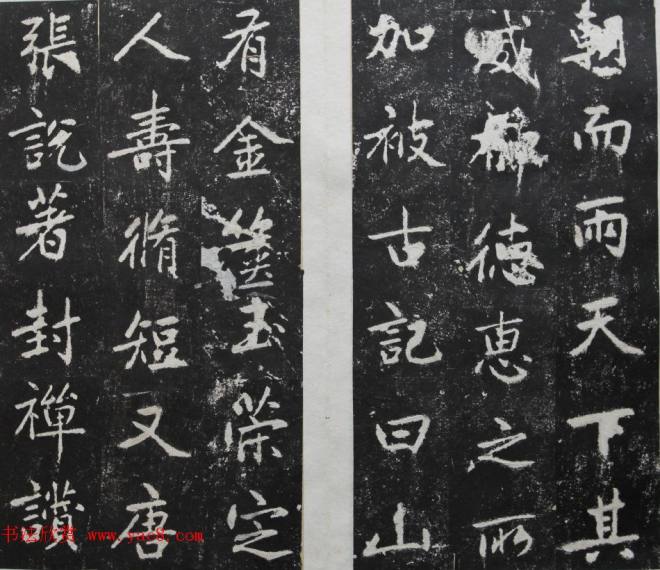 朝而雨天下其
威神德惠之所
加被古記曰山
有金篋玉策定
人壽脩短又唐
張說著封禪議
书法欣赏 www.yac8.com